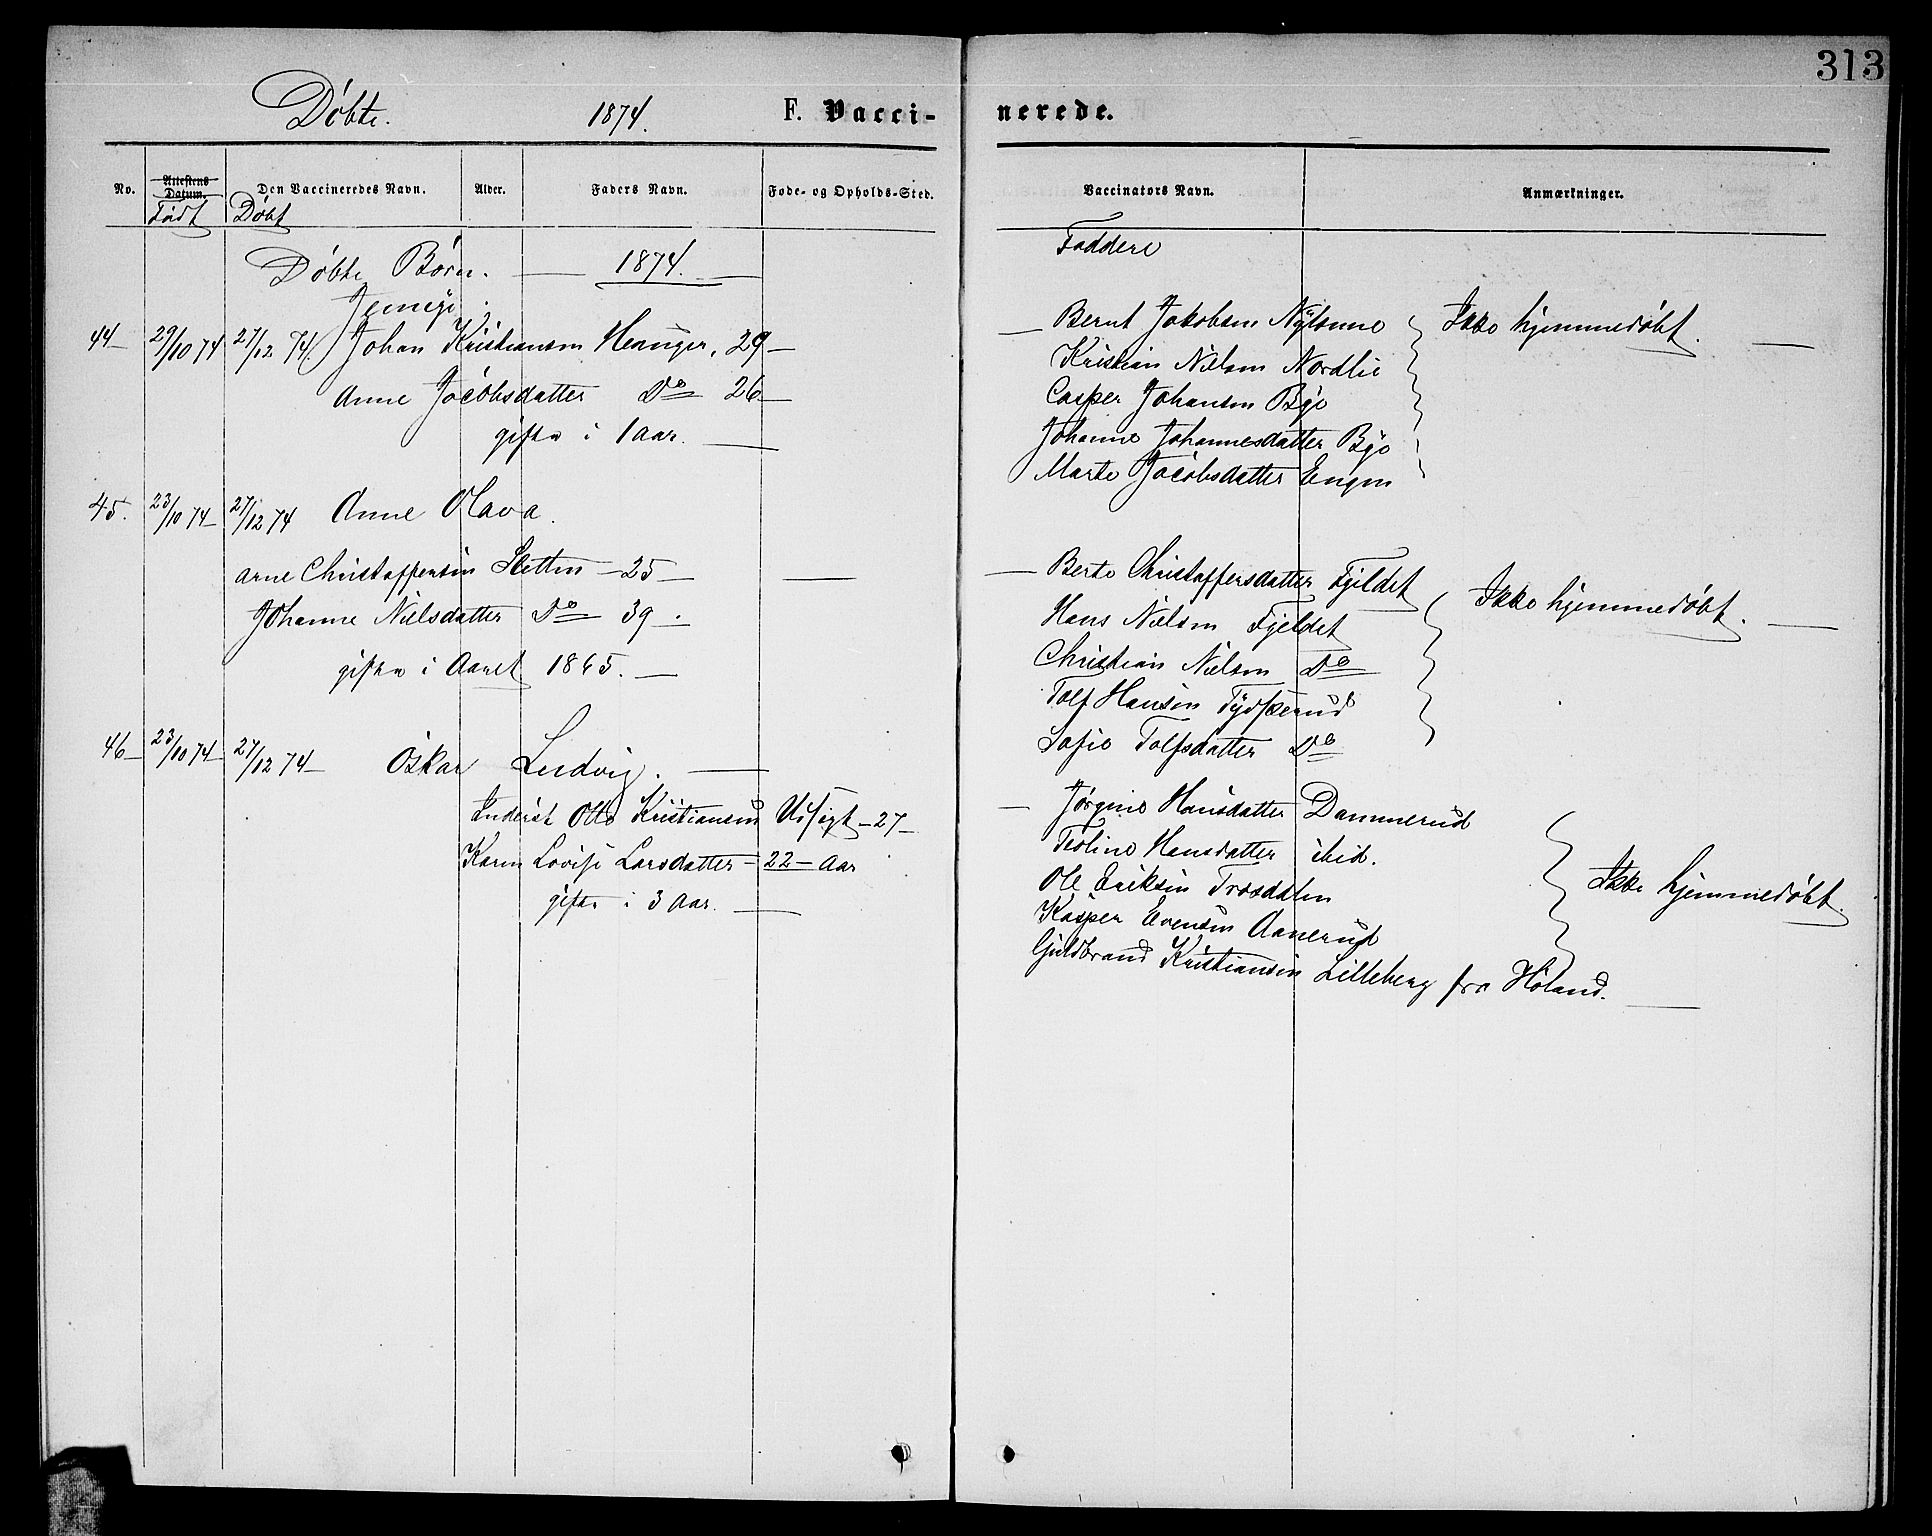 313
Døbte. 1874. F. Vacci-
nerede.
No.
Attestens Datum.
Den Vaccineredes Navn.
Alder.
Faders Navn.
Føde- og Opholds-Sted.
Vaccinators Navn.
Anmærkninger.
Født
Døbt
Døbte Børn. — 1874. —
44 — 29/10 74 27/12 74
Johan Kristiansen Hennger, 29 —
Anne Jacobsdatter Do 26 —
gifte i 1 Aar. —
45. 23/10 74 — 27/12 74 Anne Olava.
Arne Christoffersen Sletten — 25 — —
Johanne Nielsdatter Do 39 —.
gifte i Aaret 1865. —
46 — 23/10 74 — 27/12 74 — Oskar Ludvig. —
Inderst Otto Kristiansen Udsigt — 27 —
Karen Lovise Larsdatter — 22 — Aar
gifte i 3 Aar. —
Faddere
— Bernt Jakobsen Nylonne
Kristian Nielsen Nordlie
Casper Johansen Bye
Johanne Johannesdatter Bye
Marte Jacobsdatter Engen
Ikke hjemmedøbt. —
— Berte Christoffersdatter Fjeldet
Hans Nielsen Fjeldet
Christian Nielsen Do
Tolf Hansen Tydskerud
Sofie Tolfsdatter Do
Ikke hjemmedøbt. —
— Jørgine Hansdatter Dammerud
Teoline Hansdatter ibid.
Ole Eriksen Trosdalen
Kasper Evensen Aanerud
Guldbrand Kristiansen Lilleberg fra Høland. —
Ikke hjemmedøbt.